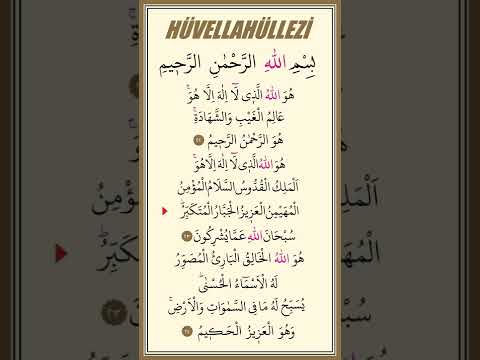 HÜVELLAHÜLLEZİ
بِسْمِ اللهِ الرَّحْمٰنِ الرَّحٖيمِ
هُوَ اللهُ الَّذٖى لَٓا اِلٰهَ اِلَّا هُوَۚ
عَالِمُ الْغَيْبِ وَالشَّهَادَةِۚ
هُوَ الرَّحْمٰنُ الرَّحٖيمُ ٢٢
هُوَ اللهُ الَّذٖى لَٓا اِلٰهَ اِلَّا هُوَۚ
اَلْمَلِكُ الْقُدُّوسُ السَّلَامُ الْمُؤْمِنُ
الْمُهَيْمِنُ الْعَزٖيزُ الْجَبَّارُ الْمُتَكَبِّرُؕ
سُبْحَانَ اللهِ عَمَّا يُشْرِكُونَ ٢٣
هُوَ اللهُ الْخَالِقُ الْبَارِئُ الْمُصَوِّرُ
لَهُ الْاَسْمَٓاءُ الْحُسْنٰىؕ
يُسَبِّحُ لَهُ مَا فِى السَّمٰوَاتِ وَالْاَرْضِۚ
وَهُوَ الْعَزٖيزُ الْحَكٖيمُ ٢٤